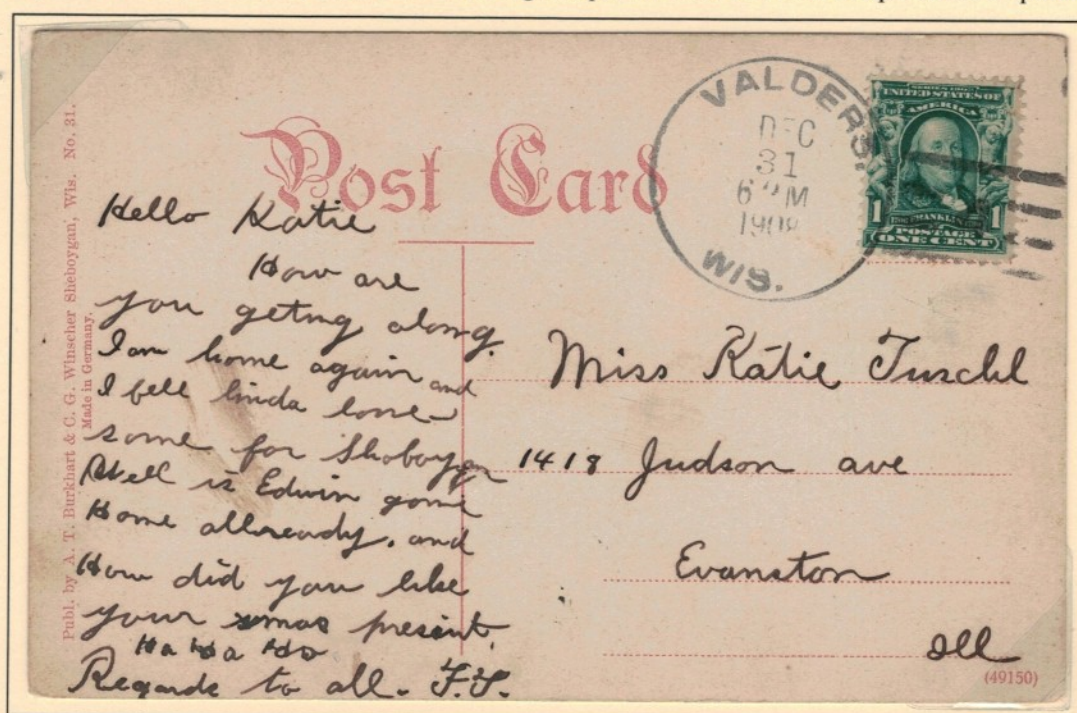 Publ. by A. T. Burkhart & C. G. Winscher Sheboygan, Wis. No. 31.
Made in Germany.
Post Card
VALDERS,
DEC
31
6 PM
1908
WIS.
SERIES 1902
UNITED STATES OF
AMERICA
1 FRANKLIN 1
POSTAGE
ONE CENT
Hello Katie
How are
you geting along.
I am home again and
I fell kinda lone-
some for Shoboygan
Well is Edwin gone
Home allready, and
How did you like
your xmas present,
Ha Ha Ha
Regards to all. F.T.
Miss Katie Tuschl
1418 Judson ave
Evanston
Ill
(49150)